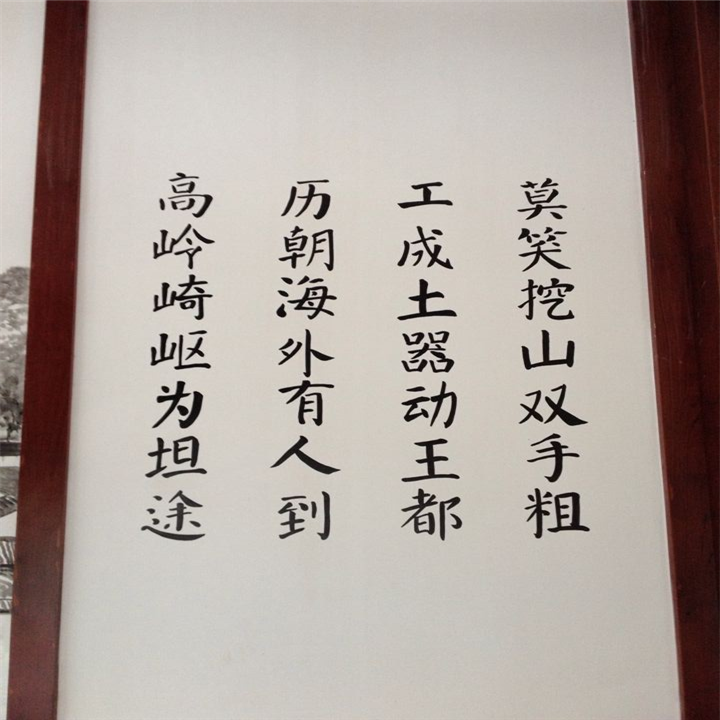 莫笑挖山双手粗
工成土器动王都
历朝海外有人到
高岭崎岖为坦途